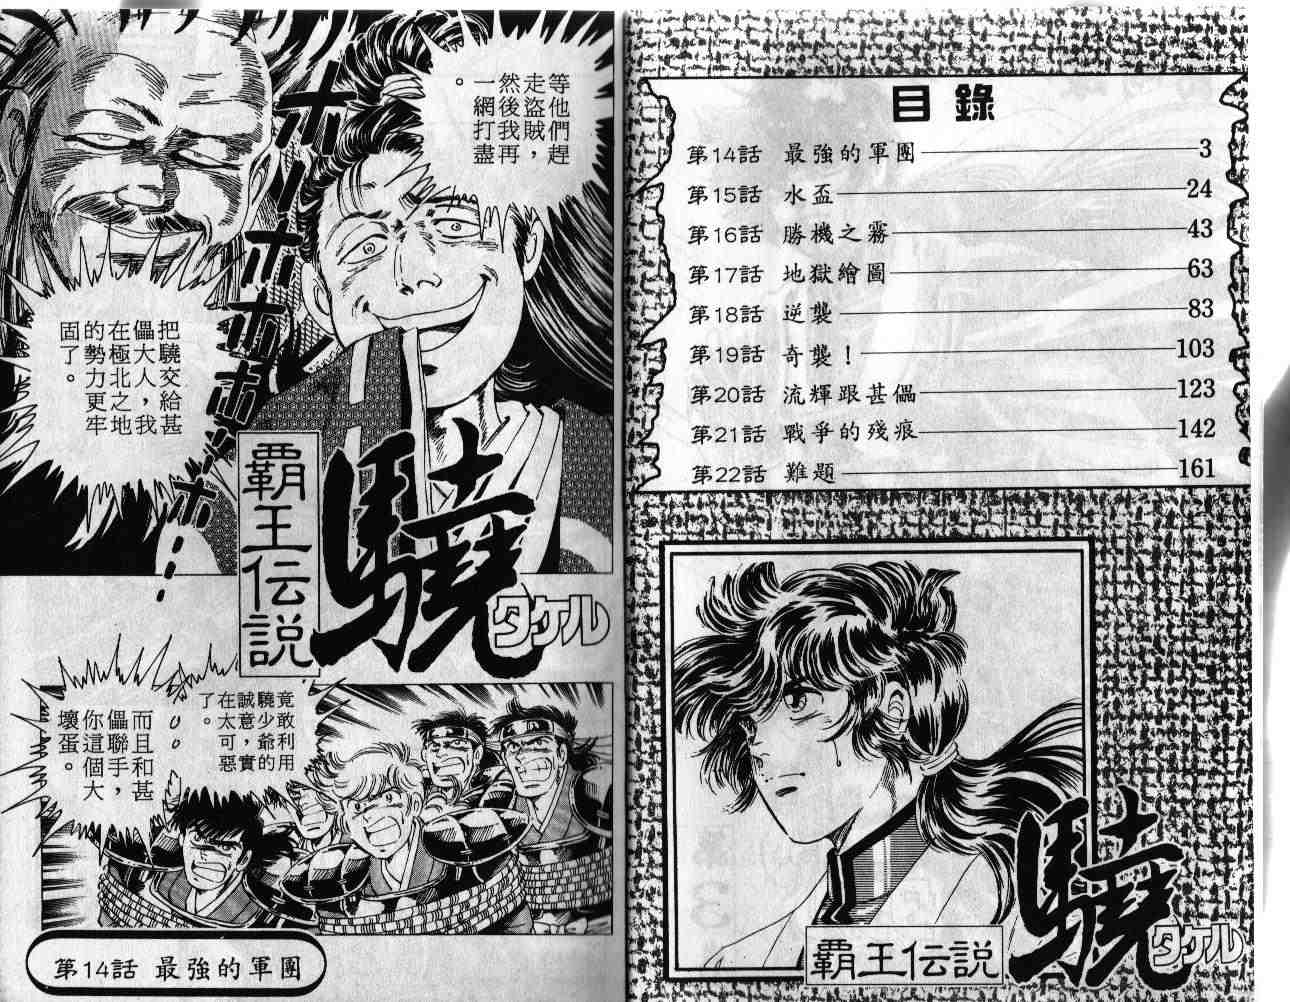 目錄
第14話 最強的軍團 3
第15話 水盃 24
第16話 勝機之霧 43
第17話 地獄繪圖 63
第18話 逆襲 83
第19話 奇襲！ 103
第20話 流輝跟甚儡 123
第21話 戰爭的殘痕 142
第22話 難題 161
覇王伝説
驍
タケル
等他們趕
走盜賊，
然後我再
一網打盡
。
ホ
ホ
ホ
ホ
ホ
ホ
把驍交給甚
儡大人，我
在極北之地
的勢力更牢
固了。
覇王伝説
驍
タケル
竟敢利用
驍少爺的
誠意，實
在太可惡
了。
而且和甚
儡聯手，
你這個大
壞蛋。
第14話 最強的軍團